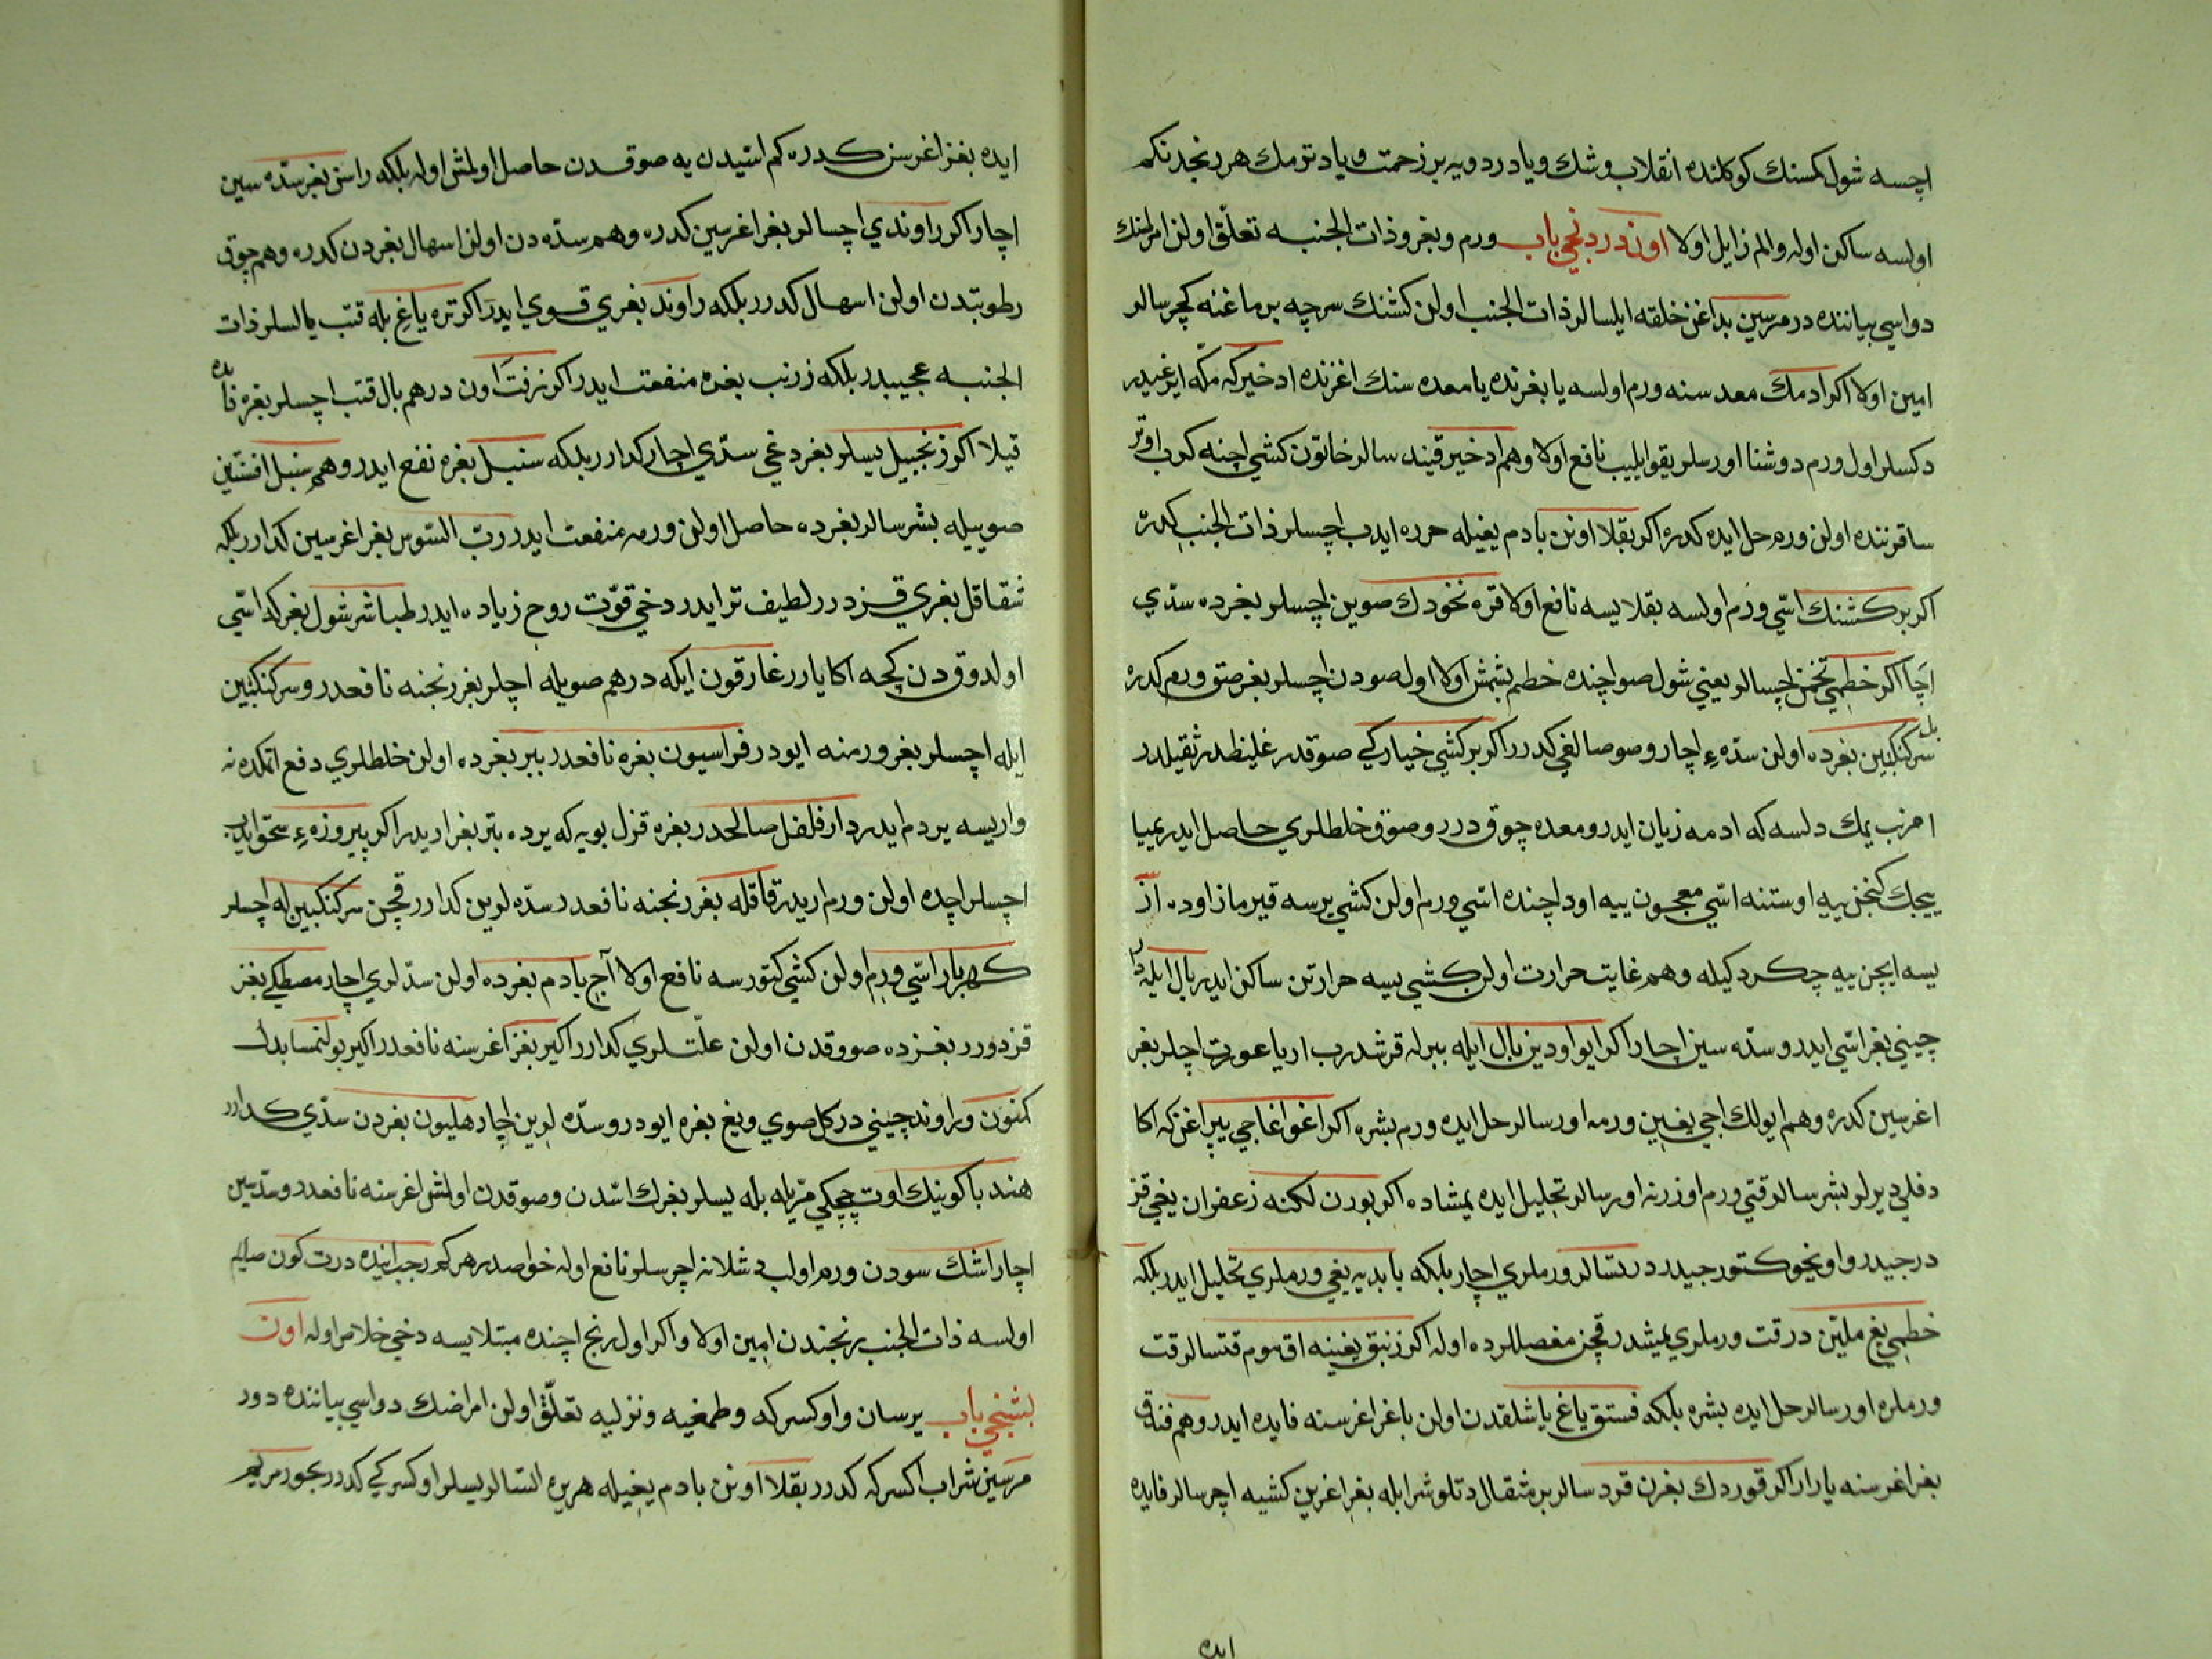 اچسه شول كمسنك كوكلنده انقلاب و شك و يا درد و يه بر زحمت و يا دتومك هر رنجدنكم
اولسه ساكن اوله و الم زايل اولا اون دردنجي باب ورم و بغر و ذات الجنبه تعلّق اولن امراضنك
دواسي بياننده در مرسين بداغن خلقه ايلسالر ذات الجنب اولن كشنك سرچه برماغنه كچرسالر
امين اولا اكر ادمك معدسنه ورم اولسه يا بغرنده يا معده سنك اغزنده ادخيركه مكّه ايرغيدر
دكسلر اول ورم دوشنا اورسلر يقو ايليب نافع اولا و هم ادخير قيند سالر خاتون كشي اچنه كرب اوتر
ساقرننده اولن ورم حل ايده كدره اكر بقلا اونن بادم يغيله حرره ايدب اچسلر ذات الجنب كدره
اكر بر كشنك اسّي ورم اولسه بقلا يسه نافع اولا قره نخودك صوين اچسلر بغرده سدّي
اچا اكر خطمي تخمن اچسالر يعني شول صو اچنده خطم بشمش اولا اول صودن اچسلر بغر صتق ورم كدره
سركنكبين بغرده اولن سدّهء اچار و صوصالغي كدرر اكر بر كشي خياركي صوقدر غليظدر ثقيلدر
امزب يمك دلسه كه ادمه زيان ايدر و معده چوق درر و صوق خلطلري حاصل ايدر يميا
ييجك كنجن ييه اوستنه اسّي معجون ييه اود اچنده اسّي ورم اولن كشي يرسه قيرمازاوده از
يسه ايچن ييه چكردكيله و هم غايت حرارت اولن كشي ييسه حرارتن ساكن ايدر بال ايله
چيني بغر اسّي ايدر و سدّه سين اچار اكر ايو اودين بال ايله ببرله قرشدرب اريا عورت اچلر بغر
اغرسين كدره و هم ايولك اجي يغين ورمه اورسالر حل ايده ورم بشره اكر اغو اغاجي يپراغن كه اكا
دفلي ديرلر بشرسالر قتي ورم اوزرنه اورسالر تحليل ايده يمشاده اكر بورن لكنه زعفران يغي قز
درجيدر و اويخو كتورجيدر دربسالر ورملري اچار بلكه بابديه يغي ورملري تحليل ايدر بلكه
خطمي يغ مليّن در قت ورملري يمشدر قچن مفصللرده اوله اكر زنبق يغينه اق موم قتسالر قت
ورملره اورسالر حل ايده بشره بلكه فستق ياغ ياشلقدن اولن باغر اغرسنه فايده ايدر و هم فندق
بغر اغرسنه يارار اكر قوردك بغرن قردسالر بر مثقال دتلو شرابله بغر اغرين كشيه اچرسالر فايده
ايده
ايده بغر اغرسن كدره كم اسّيدن يه صوقدن حاصل اولمش اوله بلكه راسن بغر سدّه سين
اچار اكر راوندي اچسالر بغر اغرسين كدره و هم سدّه دن اولن اسهال بغردن كدره و هم چوق
رطوبتدن اولن اسهال كدرر بلكه راوند بغري قوي ايدر اكر تره ياغي بله قتب يالسلر ذات
الجنبه عجيبدر بلكه زرنب بغره منفعت ايدر اكر زفت اون درهم بال قتب اچسلر بغره فايده
قيلا اكر زنجبيل يسلر بغر دخي سدّي اچار كدارر بلكه سنبل بغره نفع ايدر و هم سنبل افسنتين
صوييله بشرسالر بغرده حاصل اولن ورمه منفعت ايدر ربّ السّوس بغر اغرسين كدارر بلكه
شقاقل بغري قزدرر لطيف تر ايدر دخي قوّت روح زياده ايدر طباشر شول بغركه اسّي
اولدوق دن كچه اكا يارر غارقون ايكه درهم صويله اچلر بغر رنجنه نافعدر و سركنكبين
ايله اچسلر بغر ورمنه ايودر فراسيون بغره نافعدر ببر بغرده اولن خلطلري دفع اتمكده نه
واريسه يردم ايدر دارفلفل صالحدر بغره قزل بويه كه يرده بتر بغر اريدر اكر پيروزهء سحق ايدب
اچسلر اچده اولن ورم اريدر قاقله بغر رنجنه نافعدر سدّه لرين كدارر قچن سركنكبين له اچسلر
كهربار اسّي ورم اولن كشي كتورسه نافع اولا آجي بادم بغرده اولن سدّلري اچار مصطكي بغر
قزدورر بغرده صووقدن اولن علّتلري كدارر اكير بغر اغرسنه نافعدر اكير بولنمسا بدلي
كمنون و راوند چيني در كل صوي و يغ بغره ايودر و سدّه لرين اچار هليون بغردن سدّي كدارر
هندبا كوينك اوت چچكي مّزيله بله يسلر بغرك اسّدن و صوقدن اولمش اغرسنه نافعدر و سدّسين
اچار اشك سودن ورم اولب دشلانه اچرسلر نافع اوله خواصدر هر كم رجب اينده درت كون صايم
اولسه ذات الجنب رنجندن امين اولا و اكر اول رنج اچنده مبتلا يسه دخي خلاص اوله اون
بشنجي باب يرسان و اوكسركه و طمغيه و نزليه تعلّق اولن امراضك دواسي بياننده دور
مرسين شراب اكسركه كدرر بقلا اونن بادم يغيله هريره السّالر يسلر اوكسركي كدرر بجور مريم